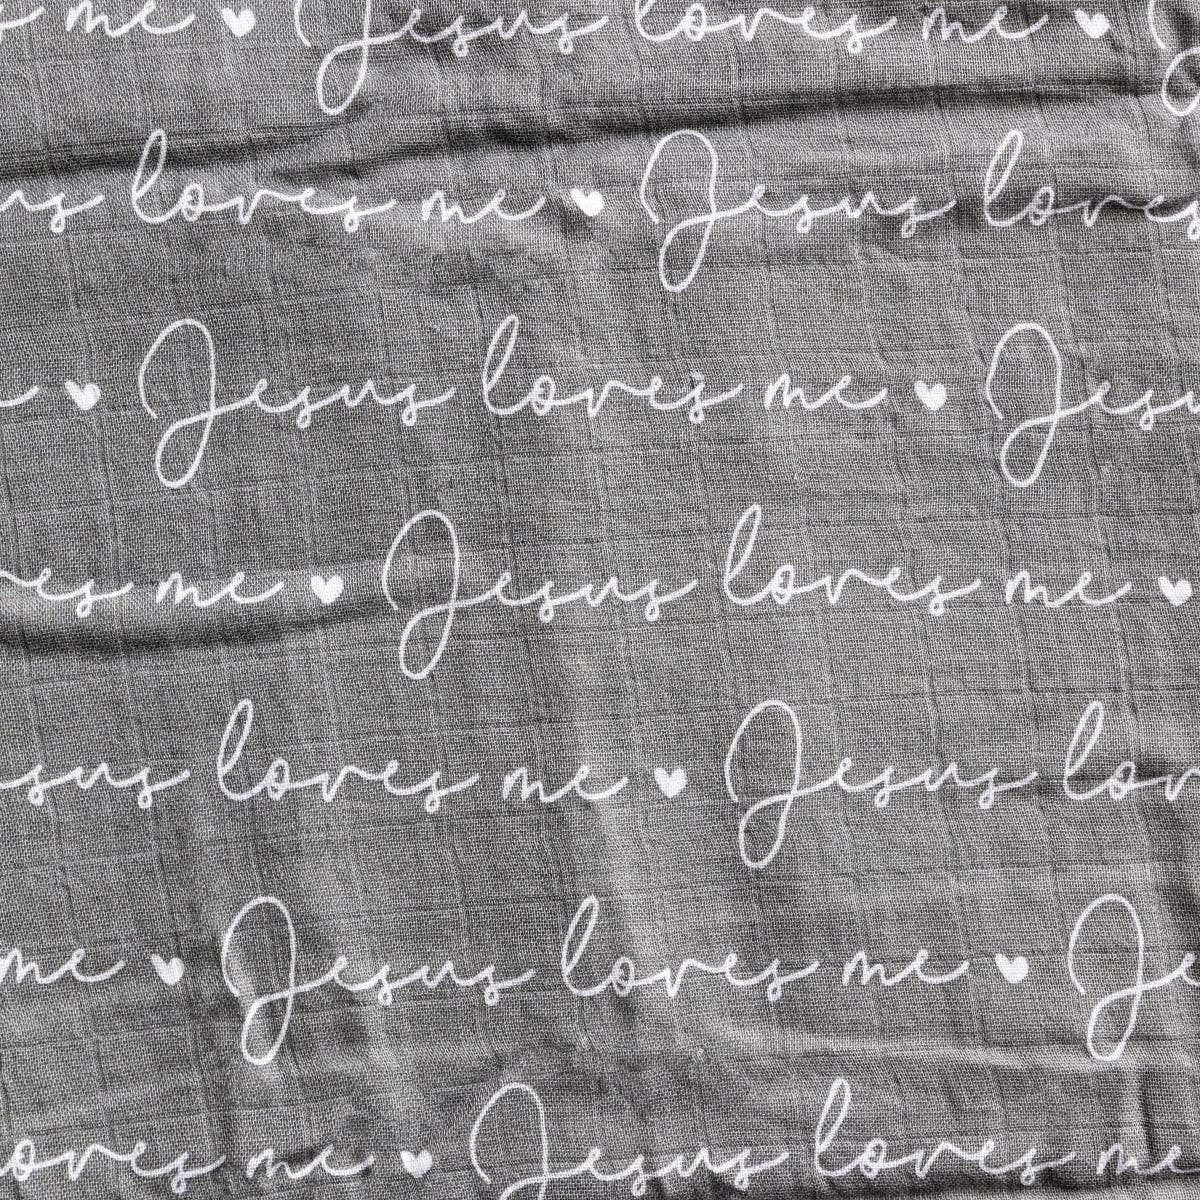 me ♥ Jesus loves me ♥
loves me ♥ Jesus loves
♥ Jesus loves me ♥ Jesus
me ♥ Jesus loves me ♥
loves me ♥ Jesus
me ♥ Jesus loves me ♥
me ♥ Jesus loves me